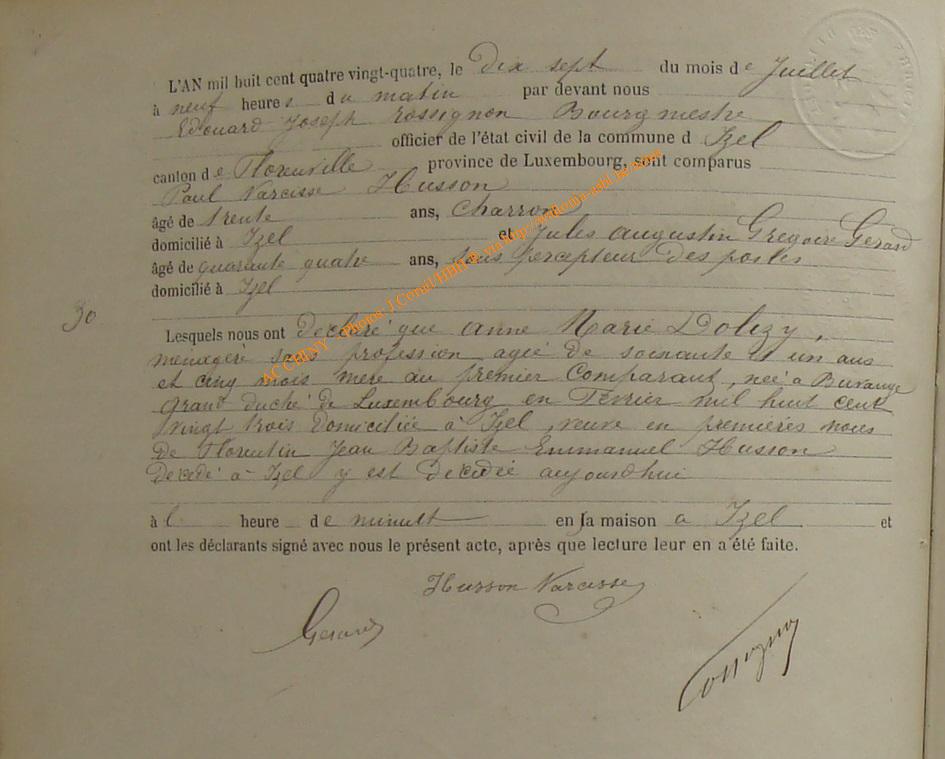 L'AN mil huit cent quatre vingt-quatre, le Dix sept du mois de Juillet
à neuf heures du matin par devant nous
Edouard Joseph Rossignon Bourgmestre
officier de l'état civil de la commune d Izel
canton de Florenville province de Luxembourg, sont comparus
Paul Narcisse Husson
âgé de trente ans, Charron
domicilié à Izel et Jules Augustin Gregoire Gerard
âgé de quarante quatre ans, sous percepteur des postes
domicilié à Izel
30
Lesquels nous ont declaré que Anne Marie Dolizy,
menagère sans profession agée de soixante et un ans
et cinq mois mere au premier Comparant, neé a Burange
Grand duché de Luxembourg en Fevrier mil huit cent
vingt trois domiciliée à Izel, veuve en premières noces
de Florentin Jean Baptiste Emmanuel Husson
Decedé à Izel y est decedée aujourdhui
à l heure de minuit en sa maison a Izel et
ont les déclarants signé avec nous le présent acte, après que lecture leur en a été faite.
Husson Narcisse
Gerard
Rossignon